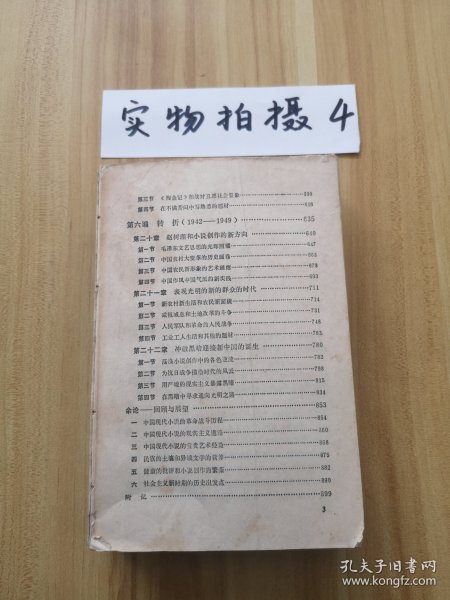 实物拍摄 4
第三节 《淘金记》和抗时五部社会百象 599
第四节 在不满苦闷中写熟悉的题材 618
第六编 转折(1942——1949) 635
第二十章 赵树理和小说创作的新方向 640
第一节 毛泽东文艺思想的光辉照耀 647
第二节 中国农村大变革的历史画卷
第三节 中国农民新形象的艺术画廊
第四节 中国作风中国气派的新实践
第二十一章 表现光明的新的群众的时代 711
第一节 新农村新生活和农民新面貌 714
第二节 减租减息和土地改革的斗争 731
第三节 人民军队和革命的人民战争 748
第四节 工业工人生活和其他的题材 763
第二十二章 冲破黑暗迎接新中国的诞生 780
第一节 国统小说创作中的各色支流 782
第二节 为抗日战争描绘时代的风云 798
第三节 用严峻的现实主义暴露黑暗 815
第四节 在黑暗中寻求通向光明之路 834
余论——回顾与展望 853
一 中国现代小说的革命战斗历程 854
二 中国现代小说的现实主义道路
三 中国现代小说的宝贵艺术经验
四 民族的土壤和异域文学的营养 875
五 健康的批评和小说创作的繁荣 882
六 社会主义新时期的历史出发点 890
附记 899
3
孔夫子旧书网
www.kongfz.com